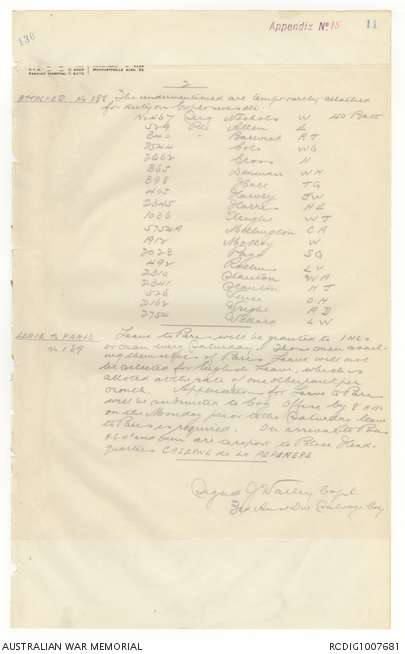 Appendix No 15
11
136
2
ATTACHED No 188 The undermentioned are temporarily attached
for duty on Explosives etc.
No 467 Sgt Nichols W 40 Batt
529 Pte Allen L
340 " Barwick A T
2544 Cole W G
2662 Cross H
365 Denman W H
898 Hall T G
405 Harvey J W
2345 Harris H L
1036 Knight W T
5754A C A
1912 Medley W
2023 S G
492 L V
2310 Stanton W A
2341 Stanton H T
526 O H
2162 Wright A D
2754 L W
LEAVE to PARIS Leave to Paris will be granted to 1 NCO
No 189 or man every Saturday. Those men availing
themselves of Paris Leave will not
be called for English Leave, which is
allotted at the rate of one other rank per
month. Application for Leave to Paris
will be submitted to Coy Office by 8 am
on the Monday prior to the Saturday leave
to Paris is required. On arrival to Paris
NCO's and men are to report to Police Head-
quarters CASERNE de la PEPENERE
Signed J Wattey Capt
3rd Aust Div Salvage Coy
AUSTRALIAN WAR MEMORIAL
RCDIG1007681